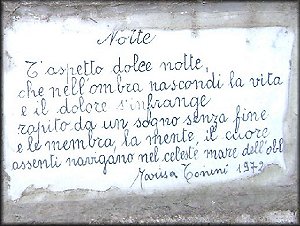 Notte
T'aspetto dolce notte,
che nell'ombra nascondi la vita
e il dolore s'infrange
rapito da un sogno senza fine
e le membra, la mente, il cuore
assenti navigano nel celeste mare dell'obl
Marisa Tonini 1972